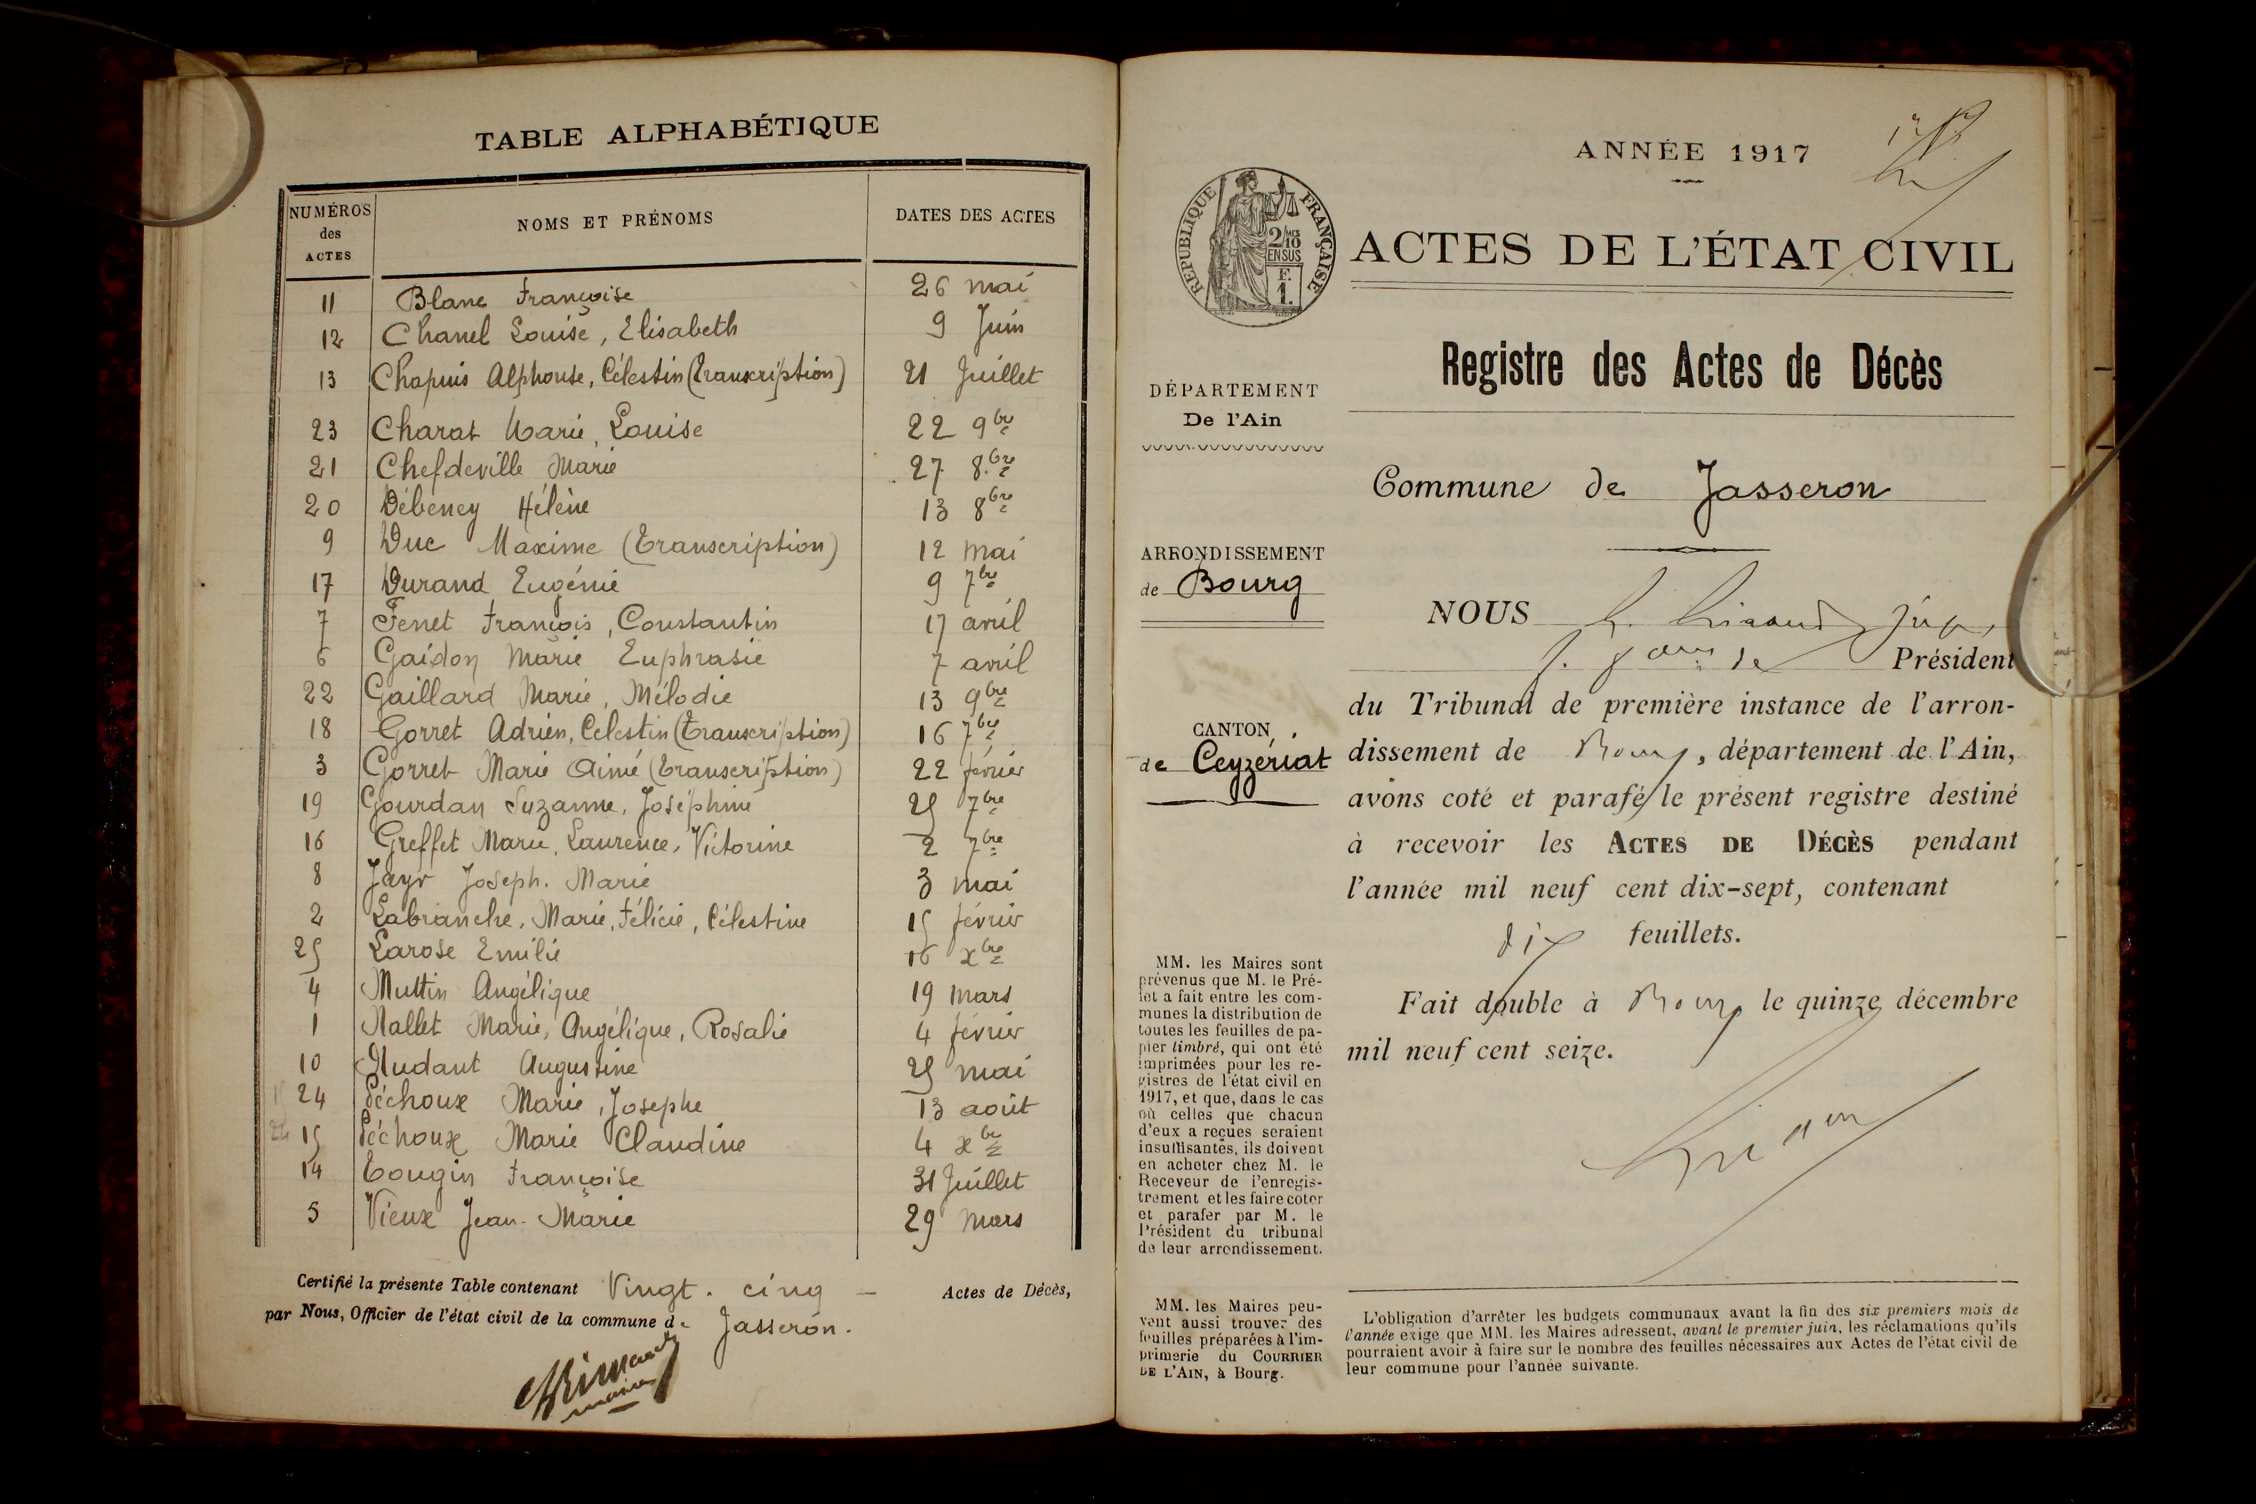 TABLE ALPHABÉTIQUE
NUMÉROS des ACTES NOMS ET PRÉNOMS DATES DES ACTES
11 Blanc Françoise 26 mai
12 Chanel Louise, Elisabeth 9 Juin
13 Chapuis Alphonse, Célestin (Transcription) 21 Juillet
23 Charat Marie, Louise 22 9bre
21 Chefdeville Marie 27 8bre
20 Débeney Hélène 13 8bre
9 Duc Maxime (Transcription) 12 mai
17 Durand Eugénie 9 7bre
7 Fenet François, Constantin 17 avril
6 Gaidon Marie Euphrasie 7 avril
22 Gaillard Marie, Mélodie 13 9bre
18 Gorret Adrien, Celestin (Transcription) 16 7bre
3 Gorret Marie Aimé (Transcription) 22 février
19 Gourdan Suzanne, Joséphine 25 7bre
16 Greffet Marie, Laurence, Victorine 2 7bre
8 Jayr Joseph. Marie 3 mai
2 Labranche, Marie, Félicie, Célestine 15 février
25 Larose Emilie 16 xbre
4 Muttin Angélique 19 mars
1 Nallet Marie, Angélique, Rosalie 4 février
10 Nudant Augustine 25 mai
24 Péchoux Marie, Josephe 13 août
15 Péchoux Marie Claudine 4 xbre
14 Tougin Françoise 31 Juillet
5 Vieux Jean-Marie 29 mars
Certifié la présente Table contenant Vingt. cinq — Actes de Décès,
par Nous, Officier de l'état civil de la commune de Jasseron.
maire
ANNÉE 1917
RÉPUBLIQUE FRANÇAISE
2/10
EN SUS
F.
1.
ACTES DE L'ÉTAT CIVIL
Registre des Actes de Décès
DÉPARTEMENT
De l'Ain
Commune de Jasseron
ARRONDISSEMENT
de Bourg
CANTON
de Ceyzériat
MM. les Maires sont
prévenus que M. le Pré-
fet a fait entre les com-
munes la distribution de
toutes les feuilles de pa-
pier timbré, qui ont été
imprimées pour les re-
gistres de l'état civil en
1917, et que, dans le cas
où celles que chacun
d'eux a reçues seraient
insuffisantes, ils doivent
en acheter chez M. le
Receveur de l'enregis-
trement et les faire coter
et parafer par M. le
Président du tribunal
de leur arrondissement.
MM. les Maires peu-
vent aussi trouver des
feuilles préparées à l'im-
primerie du COURRIER
DE L'AIN, à Bourg.
NOUS
Président
du Tribunal de première instance de l'arron-
dissement de Bourg, département de l'Ain,
avons coté et parafé le présent registre destiné
à recevoir les ACTES DE DÉCÈS pendant
l'année mil neuf cent dix-sept, contenant
dix feuillets.
Fait double à Bourg le quinze décembre
mil neuf cent seize.
L'obligation d'arrêter les budgets communaux avant la fin des six premiers mois de
l'année exige que MM. les Maires adressent, avant le premier juin, les réclamations qu'ils
pourraient avoir à faire sur le nombre des feuilles nécessaires aux Actes de l'état civil de
leur commune pour l'année suivante.